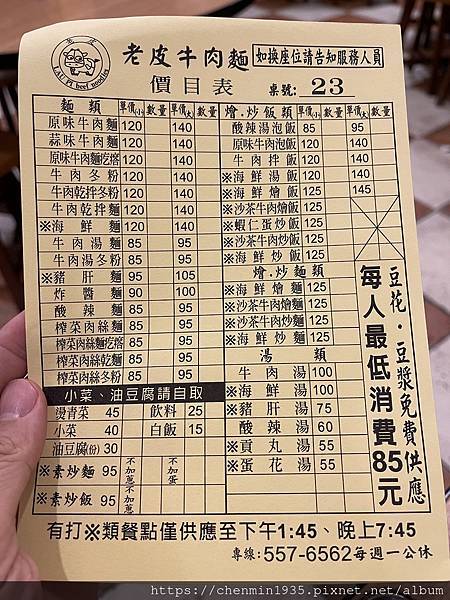 老皮
LAU PI beef noodles
老皮牛肉麵
如換座位請告知服務人員
價目表
桌號: 23
麵類 單價(小) 數量 單價(大) 數量
原味牛肉麵 120 140
蒜味牛肉麵 120 140
原味牛肉麵疙瘩 120 140
牛肉冬粉 120 140
牛肉乾拌冬粉 120 140
牛肉乾拌麵 120 140
※海鮮麵 120 140
牛肉湯麵 85 95
牛肉湯冬粉 85 95
※豬肝麵 95 105
炸醬麵 90 100
酸辣麵 85 95
榨菜肉絲麵 85 95
榨菜肉絲麵疙瘩 85 95
榨菜肉絲乾麵 85 95
榨菜肉絲冬粉 85 95
小菜、油豆腐請自取
燙青菜 45 飲料 25
小菜 40 白飯 15
油豆腐(份) 30
※素炒麵 95 不加蔥 不加蛋
※素炒飯 95 不加蔥
燴.炒飯類 單價(小) 數量 單價(大) 數量
酸辣湯泡飯 85 95
原味牛肉泡飯 120 140
牛肉拌飯 120 140
※海鮮湯飯 120 140
※海鮮燴飯 125 145
※沙茶牛肉燴飯 125
※蝦仁蛋炒飯 125
※沙茶牛肉炒飯 125
※海鮮炒飯 125
燴.炒麵類
※海鮮燴麵 125
※沙茶牛肉燴麵 125
※沙茶牛肉炒麵 125
※海鮮炒麵 125
湯類
牛肉湯 100
※海鮮湯 100
※豬肝湯 75
酸辣湯 60
※貢丸湯 55
※蛋花湯 55
豆花．豆漿免費供應
每人最低消費85元
有打※類餐點僅供應至下午1:45、晚上7:45
專線:557-6562每週一公休
https://chenmin1935.pixnet.net/album